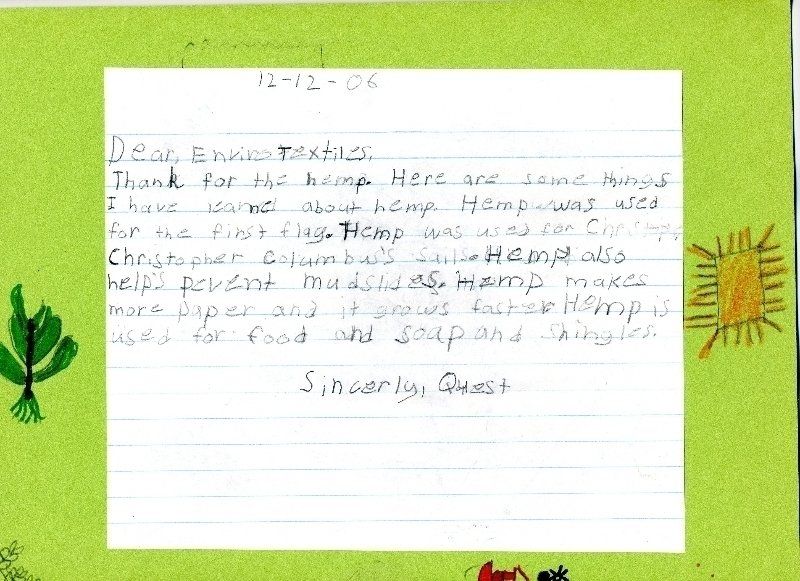 12-12-06
Dear, EnviroTextiles,
Thank for the hemp. Here are some things
I have learned about hemp. Hemp was used
for the first flag. Hemp was used for Chris
Christopher Columbus's sails. Hemp also
help's pevent mudslides. Hemp makes
more paper and it grows faster Hemp is
used for food and soap and shingles.
Sincerly, Quest